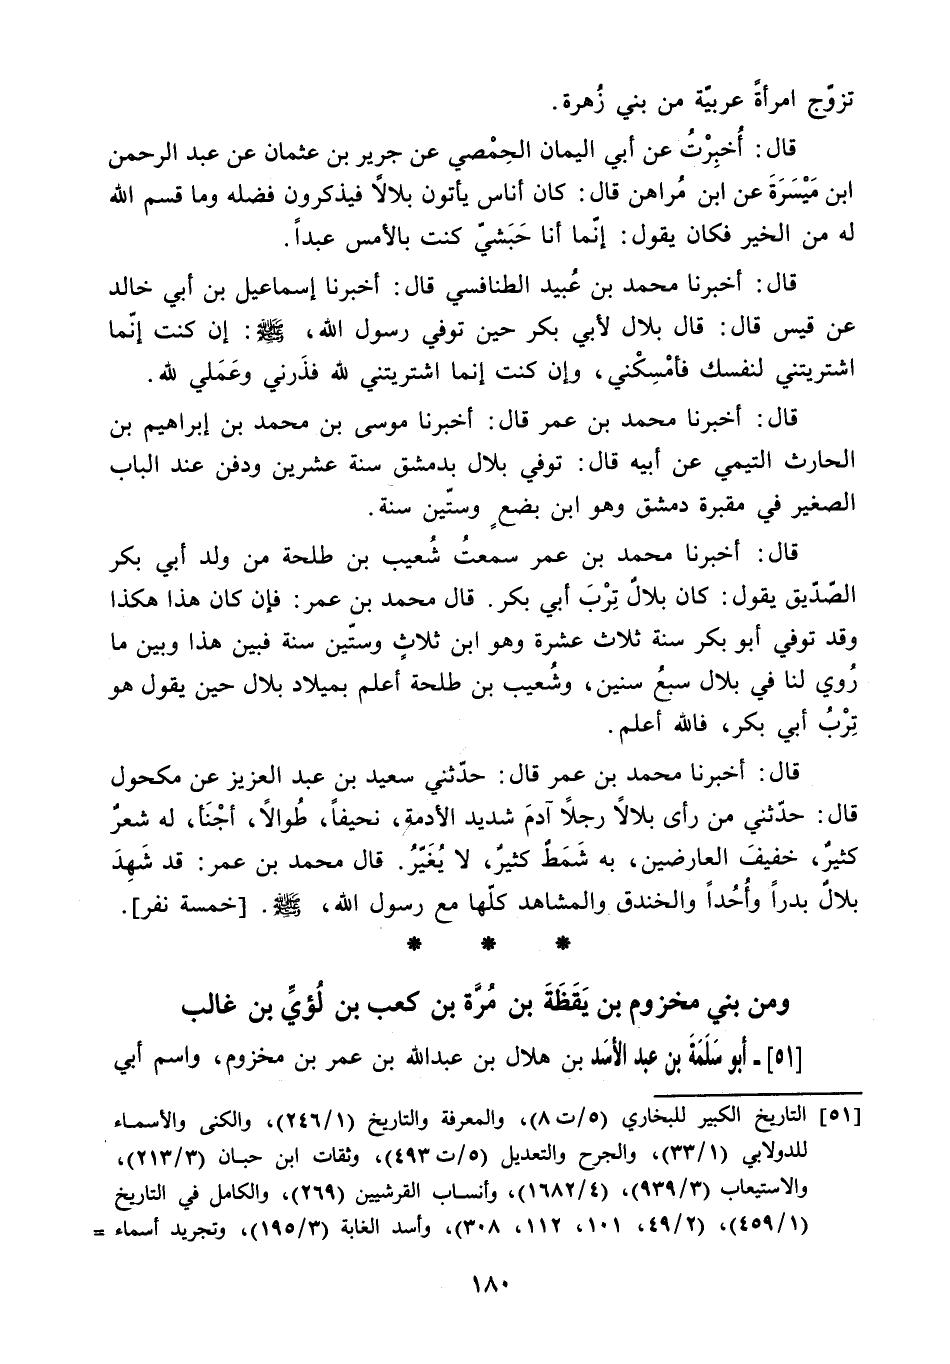 تزوّج امرأةً عربيّة من بني زُهرة.
قال: أُخبِرْتُ عن أبي اليمان الحِمْصي عن جرير بن عثمان عن عبد الرحمن
ابن مَيْسَرَةَ عن ابن مُراهن قال: كان أناس يأتون بلالاً فيذكرون فضله وما قسم الله
له من الخير فكان يقول: إنّما أنا حَبَشيّ كنت بالأمس عبداً.
قال: أخبرنا محمد بن عُبيد الطنافسي قال: أخبرنا إسماعيل بن أبي خالد
عن قيس قال: قال بلال لأبي بكر حين توفي رسول الله، ﷺ: إن كنت إنّما
اشتريتني لنفسك فأمْسِكْني، وإن كنت إنما اشتريتني لله فذَرني وعَمَلي لله.
قال: أخبرنا محمد بن عمر قال: أخبرنا موسى بن محمد بن إبراهيم بن
الحارث التيمي عن أبيه قال: توفي بلال بدمشق سنة عشرين ودفن عند الباب
الصغير في مقبرة دمشق وهو ابن بضعٍ وستّين سنة.
قال: أخبرنا محمد بن عمر سمعتُ شُعيب بن طلحة من ولد أبي بكر
الصّدّيق يقول: كان بلالٌ تِرْبَ أبي بكر. قال محمد بن عمر: فإن كان هذا هكذا
وقد توفي أبو بكر سنة ثلاث عشرة وهو ابن ثلاثٍ وستّين سنة فبين هذا وبين ما
رُوي لنا في بلال سبعُ سنين، وشُعيب بن طلحة أعلم بميلاد بلال حين يقول هو
تِرْبُ أبي بكر، فالله أعلم.
قال: أخبرنا محمد بن عمر قال: حدّثني سعيد بن عبد العزيز عن مكحول
قال: حدّثني من رأى بلالاً رجلاً آدمَ شديد الأدمةِ، نحيفاً، طُوالاً، أجْنَأ، له شعرٌ
كثيرٌ، خفيفَ العارضين، به شَمَطٌ كثيرٌ، لا يُغَيِّرُ. قال محمد بن عمر: قد شَهِدَ
بلالٌ بدراً وأُحُداً والخندق والمشاهد كلّها مع رسول الله، ﷺ. [خمسة نفر].
* * *
ومن بني مخزوم بن يَقَظَةَ بن مُرَّة بن كعب بن لُؤيِّ بن غالب
[٥١] ـ أبو سَلَمَة بن عبد الأسَد بن هلال بن عبدالله بن عمر بن مخزوم، واسم أبي
[٥١] التاريخ الكبير للبخاري (٥/ت ٨)، والمعرفة والتاريخ (٢٤٦/١)، والكنى والأسماء
للدولابي (٣٣/١)، والجرح والتعديل (٥/ت ٤٩٣)، وثقات ابن حبان (٢١٣/٣)،
والاستيعاب (٩٣٩/٣)، (١٦٨٢/٤)، وأنساب القرشيين (٢٦٩)، والكامل في التاريخ
(٤٥٩/١)، (٤٩/٢، ١٠١، ١١٢، ٣٠٨)، وأسد الغابة (١٩٥/٣)، وتجريد أسماء =
١٨٠